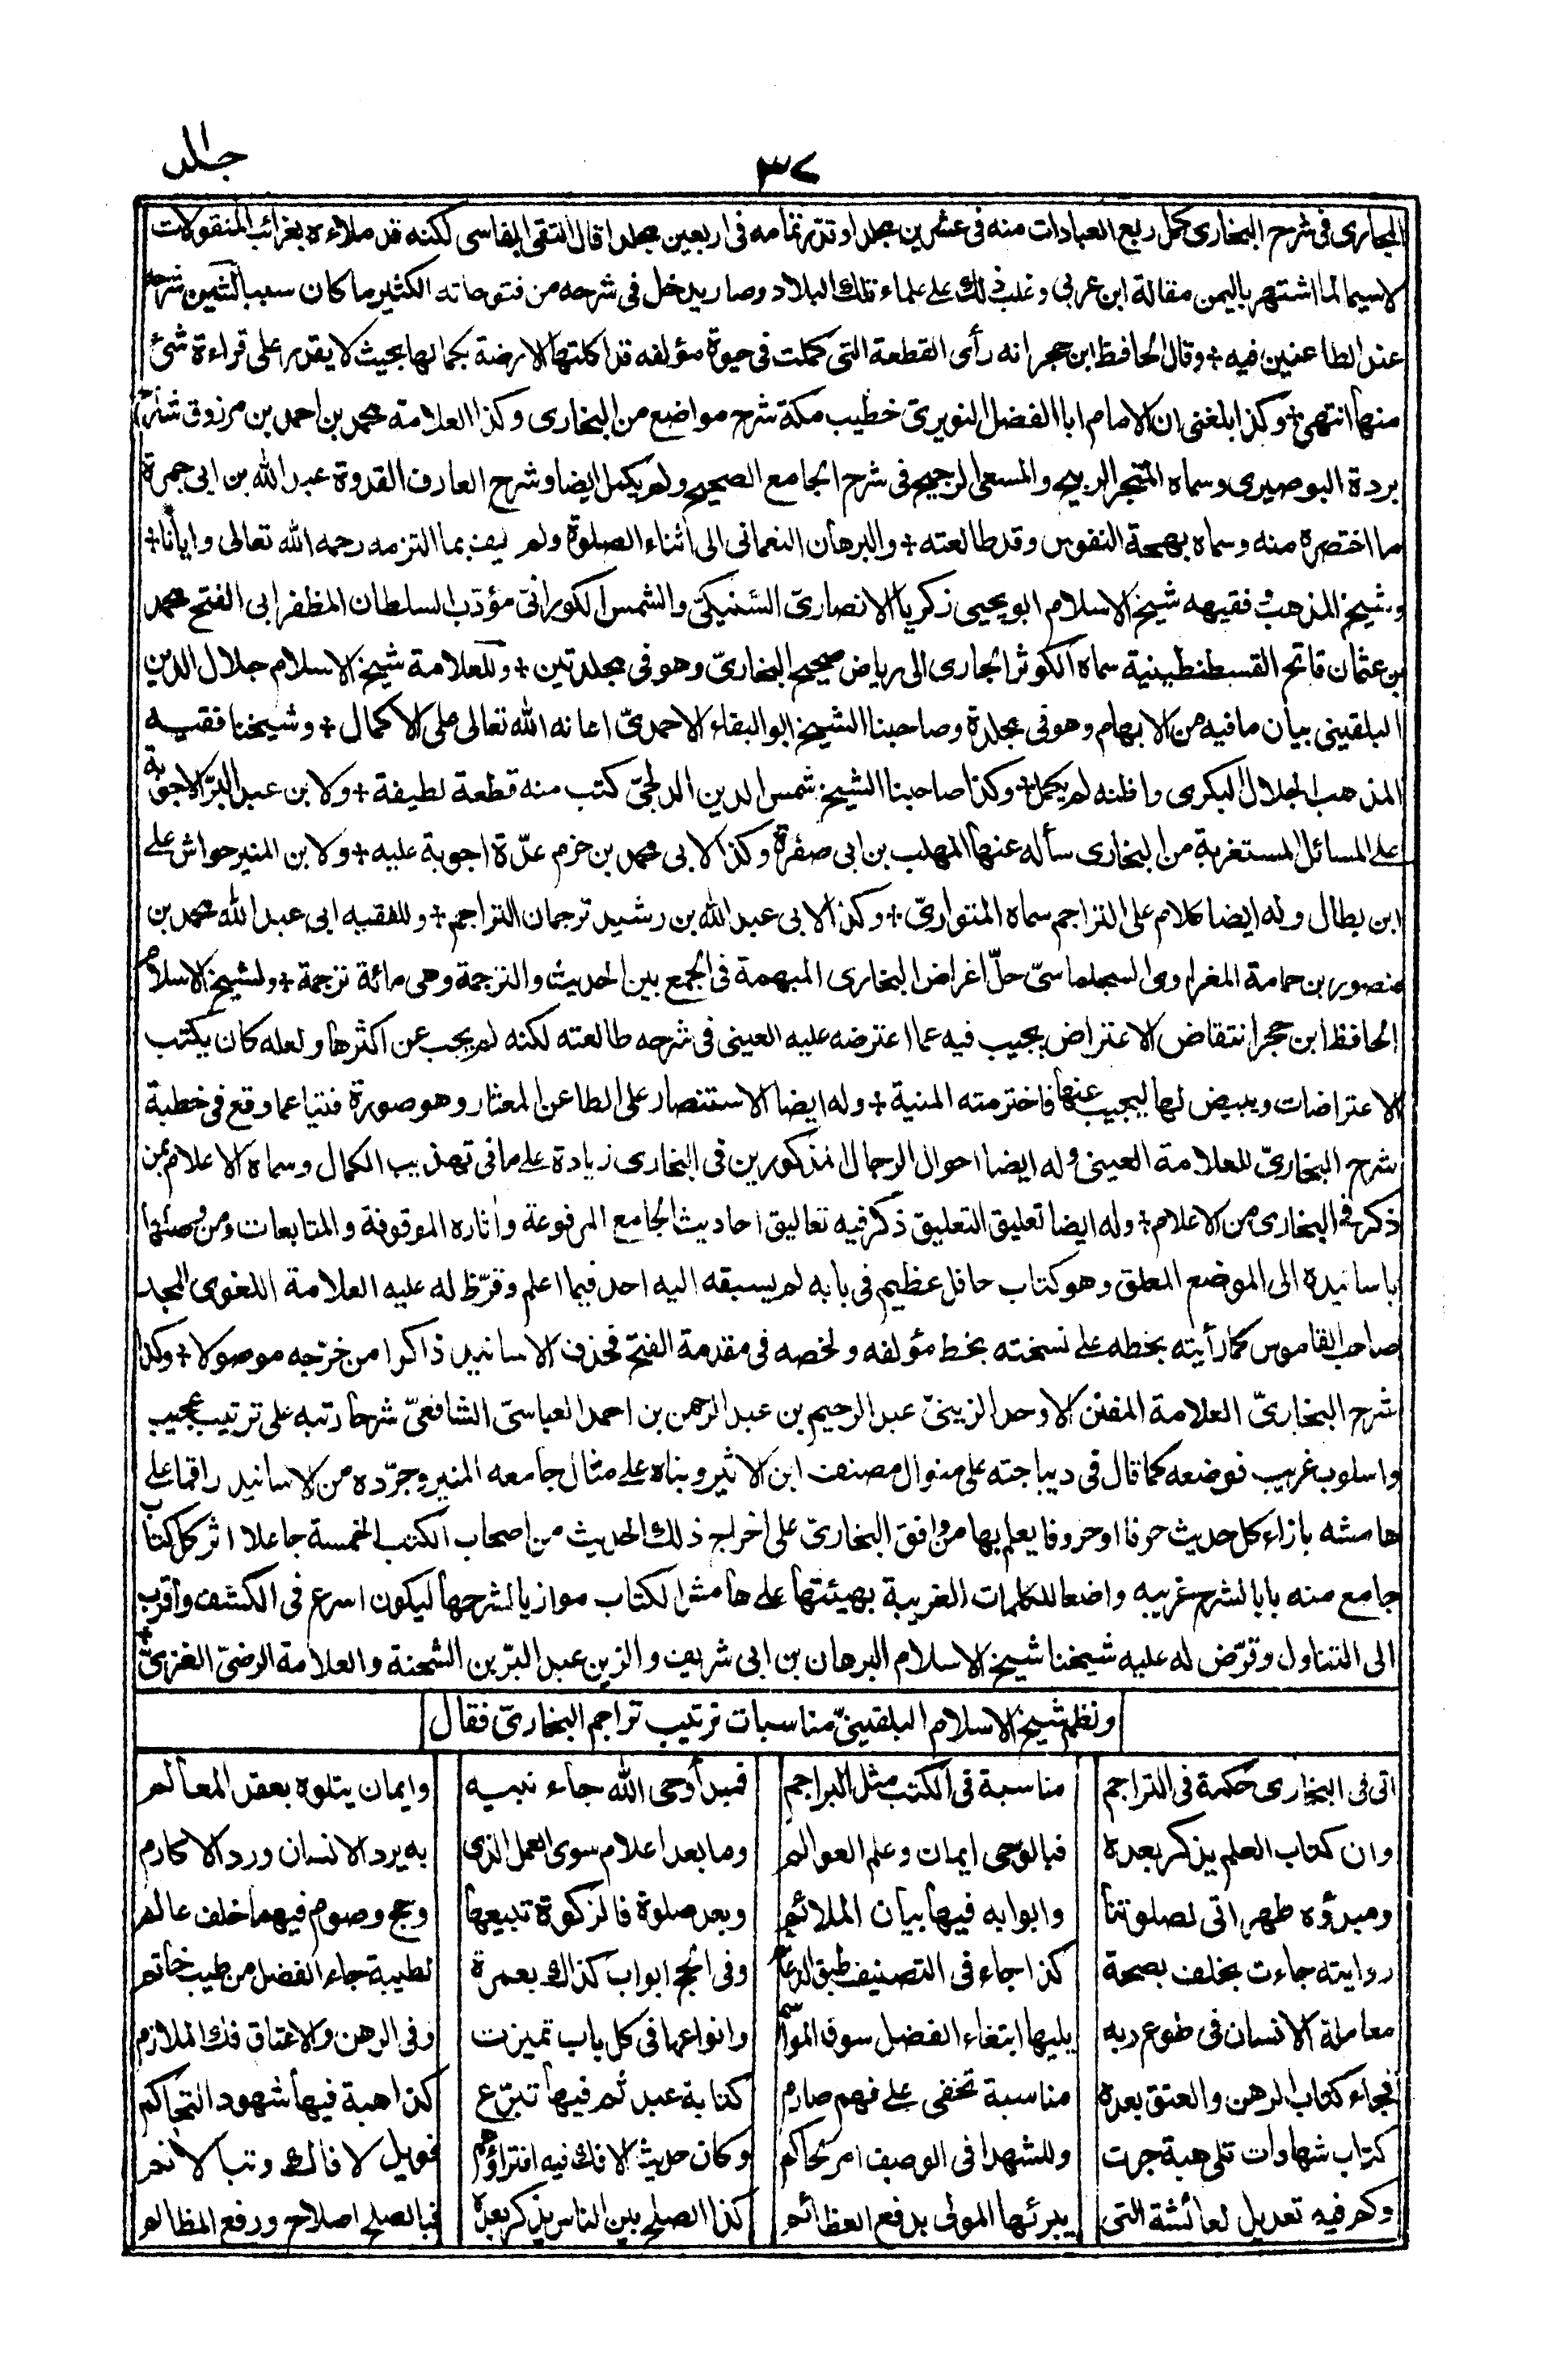 جلد
٣٧
الجارى فى شرح البخارى كمل ربع العبادات منه فى عشرين مجلدا وقدر تمامه فى اربعين مجلدا قال التقى الفاسى لكنه قد ملاءه بغرائب المنقولات
لاسيما لما اشتهر باليمن مقالة ابن عربى وغلب ذلك على علماء تلك البلاد وصار يدخل فى شرحه من فتوحاته الكثير ما كان سببا لشين شرحه
عند الطاعنين فيه + وقال الحافظ ابن حجر انه رأى القطعة التى كملت فى حيوة مؤلفه قد اكلتها الارضة بكمالها بحيث لا يقدر على قراءة شئ
منها انتهى + وكذا بلغنى ان الامام ابا الفضل النويرى خطيب مكة شرح مواضع من البخارى وكذا العلامة محمد بن احمد بن مرزوق شارح
بردة البوصيرى وسماه المتجر الربيح والمسعى الرجيح فى شرح الجامع الصحيح ولم يكمل ايضا وشرح العارف القدوة عبد الله بن ابى جمرة
ما اختصره منه وسماه بهجة النفوس وقد طالعته + والبرهان النعمانى الى اثناء الصلوة ولم يف بما التزمه رحمه الله تعالى وايانا +
وشيخ المذهب وفقيهه شيخ الاسلام ابو يحيى زكريا الانصارىّ السنيكىّ والشمس الكورانىّ مؤدّب السلطان المظفر ابى الفتح محمد
بن عثمان فاتح القسطنطينية سماه الكوثر الجارى الى رياض صحيح البخارىّ وهو فى مجلدتين + وللعلامة شيخ الاسلام جلال الدين
البلقينى بيان ما فيه من الابهام وهو فى مجلدة وصاحبنا الشيخ ابو البقاء الاحمدىّ اعانه الله تعالى على الاكمال + وشيخنا فقيه
المذهب الجلال البكرى واظنه لم يكمل + وكذا صاحبنا الشيخ شمس الدين الدلجىّ كتب منه قطعة لطيفة + ولابن عبد البرّ الاجوبة
على المسائل المستغربة من البخارى سأله عنها المهلب بن ابى صفرة وكذا لابى محمد بن حزم عدّة اجوبة عليه + ولابن المنير حواش على
ابن بطال وله ايضا كلام على التراجم سماه المتوارىّ + وكذا لابى عبد الله بن رشيد ترجمان التراجم + وللفقيه ابى عبد الله محمد بن
منصور بن حمامة المغراوى السجلماسىّ حلّ اغراض البخارى المبهمة فى الجمع بين الحديث والترجمة وهى مائة ترجمة + ولشيخ الاسلام
الحافظ ابن حجر انتقاض الاعتراض يجيب فيه عما اعترضه عليه العينى فى شرحه طالعته لكنه لم يجب عن اكثرها ولعله كان يكتب
الاعتراضات ويبيض لها ليجيب عنها فاخترمته المنية + وله ايضا الاستنصار على الطاعن المعثار وهو صورة فتيا عما وقع فى خطبة
شرح البخارىّ للعلامة العينى وله ايضا احوال الرجال المذكورين فى البخارى زيادة على ما فى تهذيب الكمال وسماه الاعلام بمن
ذكر فى البخارى من الاعلام + وله ايضا تعليق التعليق ذكر فيه تعاليق احاديث الجامع المرفوعة واثاره الموقوفة والمتابعات ومن وصلها
باسانيده الى الموضع المعلق وهو كتاب حافل عظيم فى بابه لم يسبقه اليه احد فيما اعلم وقرّظ له عليه العلامة اللغوى المجد
صاحب القاموس كما رأيته بخطه على نسخته بخط مؤلفه ولخصه فى مقدمة الفتح فحذف الاسانيد ذاكرا من خرّجه موصولا + وكذا
شرح البخارىّ العلامة المفنن الاوحد الزينىّ عبد الرحيم بن عبد الرحمن بن احمد العباسىّ الشافعىّ شرحا رتبه على ترتيب عجيب
واسلوب غريب فوضعه كما قال فى ديباجته على منوال مصنف ابن الاثير وبناه على مثال جامعه المنير وجرّده من الاسانيد راقما على
هامشه بازاء كل حديث حرفا او حروفا يعلم بها من وافق البخارىّ على اخراج ذلك الحديث من اصحاب الكتب الخمسة جاعلا اثر كل كتاب
جامع منه بابا لشرح غريبه واضعا للكلمات الغريبة بهيئتها على هامش الكتاب موازيا لشرحها ليكون اسرع فى الكشف واقرب
الى التناول وقرّض له عليه شيخنا شيخ الاسلام البرهان بن ابى شريف والزين عبد البرّ بن الشحنة والعلامة الرضىّ الغزىّ +
ونظم شيخ الاسلام البلقينىّ مناسبات ترتيب تراجم البخارىّ فقال
اتى فى البخارى حكمة فى التراجم مناسبة فى الكتب مثل البراجم فمبدأ وحى الله جاء نبيه وايمان يتلوه بعقد المعالم
وان كتاب العلم يذكر بعده فبالوحى ايمان وعلم العوالم وما بعد اعلام سوى العمل الذى به يرد الانسان ورد الاكارم
ومبدؤه طهر اتى لصلوتنا وابوابه فيها بيان الملائم وبعد صلوة فالزكوة تبيعها وحج وصوم فيهما خلف عالم
روايته جاءت بخلف بصحة كذا جاء فى التصنيف طبق الدعائم وفى الحج ابواب كذاك بعمرة لطيبة جاء الفضل من طيب خاتم
معاملة الانسان فى طوع ربه يليها ابتغاء الفضل سوق المواسم وانواعها فى كل باب تميزت وفى الرهن والاعتاق فك الملازم
فجاء كتاب الرهن والعتق بعده مناسبة تخفى على فهم صارم كتابة عبد ثم فيها تبرّع كذا هبة فيها شهود التحاكم
كتاب شهادات تلى هبة جرت وللشهدا فى الوصف امر لحاكم وكان حديث الافك فيه افتراؤهم فويل لافاك وتبا لاثم
وكم فيه تعديل لعائشة التى يبرئها المولى بدفع العظائم كذا الصلح بين الناس يذكر بعده فبالصلح اصلاح ورفع المظالم